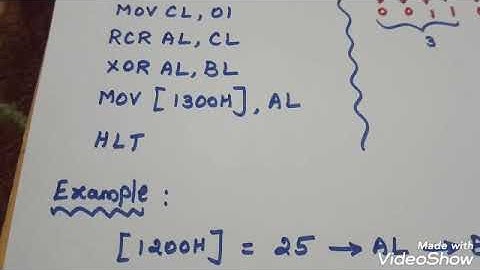 MOV CL, 01
RCR AL, CL
XOR AL, BL
MOV [1300H], AL
HLT
0 0 1 1 0
3
Example :
[1200H] = 25 → AL → B
Made with
VideoShow